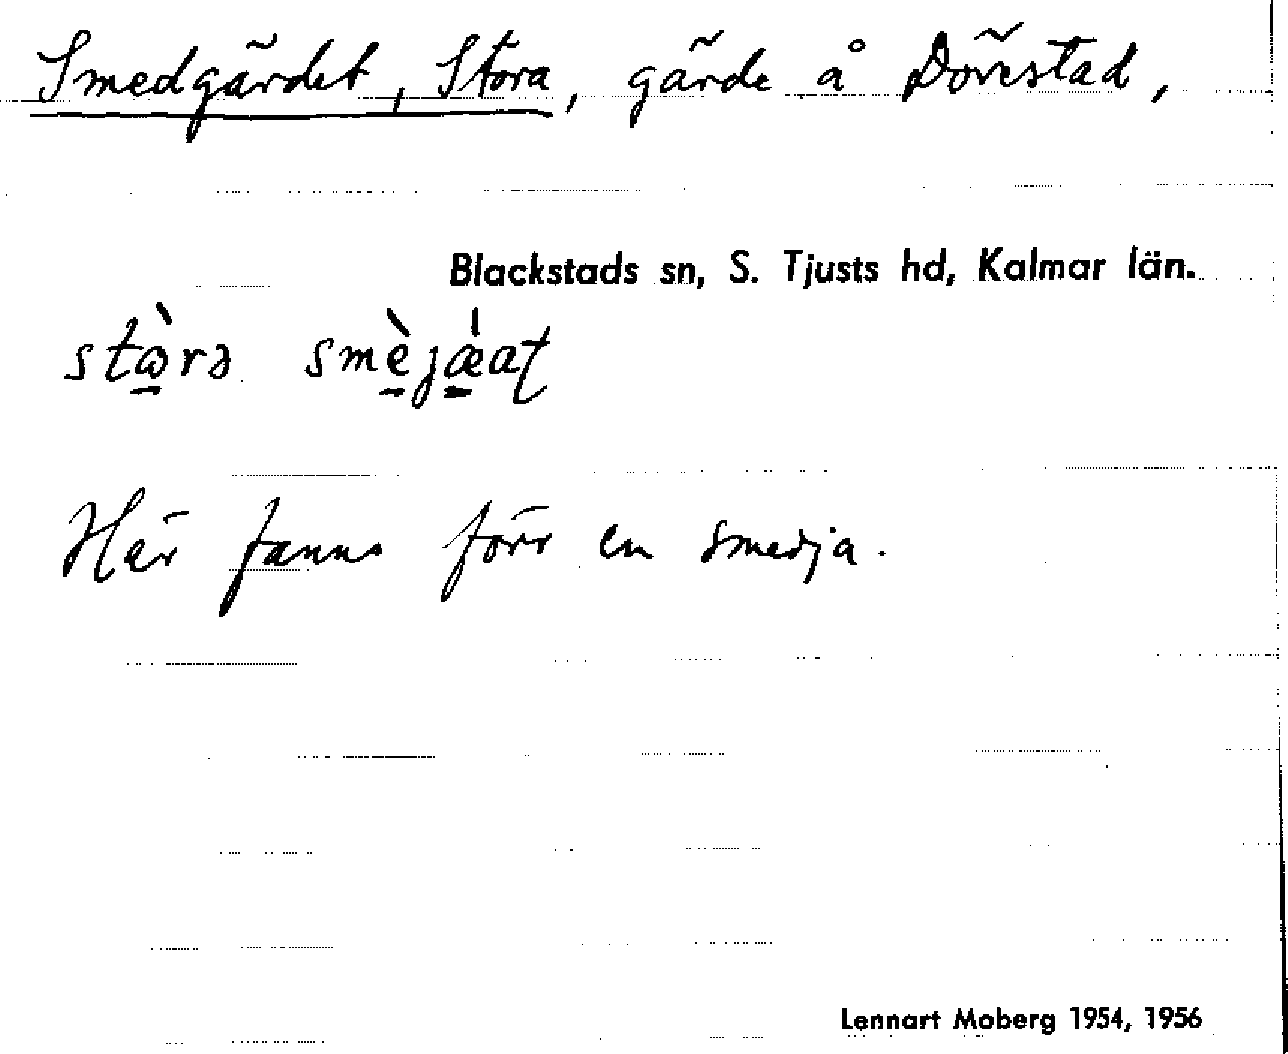 Smedgärdet, Stora, gärde å Dörestad,
Blackstads sn, S. Tjusts hd, Kalmar län.
Här fanns förr en smedja.
Lennart Moberg 1954, 1956